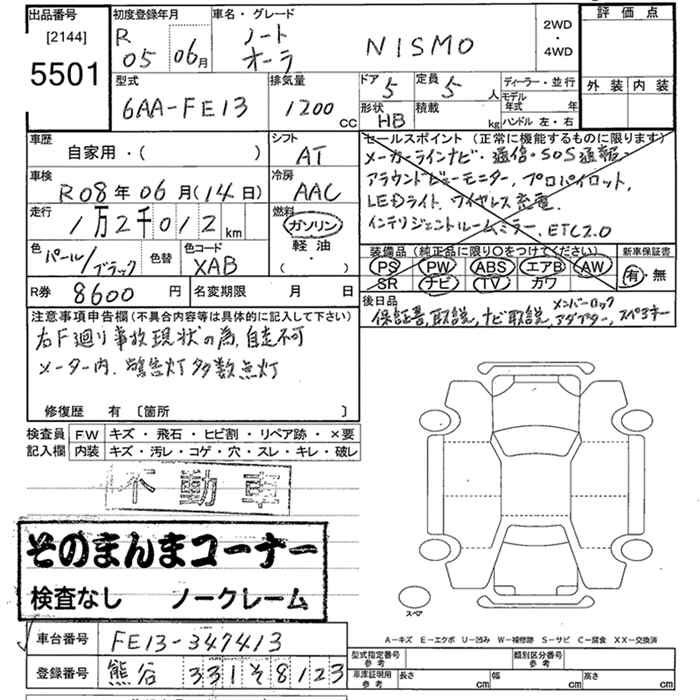 出品番号
[2144]
5501
初度登録年月
R
05 06月
車名・グレード
ノート
オーラ NISMO
2WD
・
4WD
評価点
外装 内装
型式
6AA-FE13
排気量
1200 CC
ドア 5
形状 HB
定員 5 人
積載 kg
ディーラー・並行
モデル年式 年
ハンドル 左・右
車歴
自家用・( )
シフト
AT
車検
R08年06月(14日)
冷房
AAC
走行
1万2千012 km
燃料
ガソリン
軽油
( ・ )
色 パール/ブラック 色替
色コード
XAB
R券 8600 円
名変期限 月 日
セールスポイント(正常に機能するものに限ります)
メーカーラインナビ・通信・SOS通報・
アラウンドビューモニター, プロパイロット,
LEDライト, ワイヤレス充電,
インテリジェントルームミラー, ETC2.0
装備品(純正品に限り〇をつけてください)
PS PW ABS エアB AW
SR ナビ TV カワ
新車保証書
有・無
後日品
保証書, 取説, ナビ取説, メンバーロックアダプター, スペアキー
注意事項申告欄(不具合内容等は具体的に記入して下さい)
右F廻り事故現状の為, 自走不可
メーター内, 警告灯多数点灯
修復歴 有 〔箇所 〕
検査員記入欄
FW キズ・飛石・ヒビ割・リペア跡・×要
内装 キズ・汚レ・コゲ・穴・スレ・キレ・破レ
不動車
そのまんまコーナー
検査なし ノークレーム
スペア
A-キズ E-エクボ U-凹み W-補修跡 S-サビ C-腐食 XX-交換済
車台番号 FE13-347413
登録番号 熊谷 331そ8123
型式指定番号
参考
類別区分番号
参考
車庫証明用
参考
長さ cm 幅 cm 高さ cm